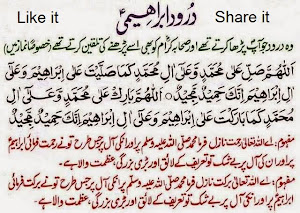 Like it درود ابراہیمی Share it
وہ درود جو آپ پڑھا کرتے تھے اور صحابہ کرام کو بھی اسے پڑھنے کی تلقین کرتے تھے (خصوصاً نماز میں)
اَللّٰهُمَّ صَلِّ عَلٰى مُحَمَّدٍ وَّعَلٰٓى اٰلِ مُحَمَّدٍ كَمَا صَلَّيْتَ عَلٰٓى اِبْرَاهِيْمَ وَعَلٰٓى اٰلِ
اِبْرَاهِيْمَ اِنَّكَ حَمِيْدٌ مَّجِيْدٌ اَللّٰهُمَّ بَارِكْ عَلٰى مُحَمَّدٍ وَّعَلٰٓى اٰلِ
مُحَمَّدٍ كَمَا بَارَكْتَ عَلٰٓى اِبْرَاهِيْمَ وَعَلٰٓى اٰلِ اِبْرَاهِيْمَ اِنَّكَ حَمِيْدٌ مَّجِيْدٌ
مفہوم: اے اللہ تعالیٰ رحمت نازل فرما محمد صلی اللہ علیہ وسلم پر اور انکی آل پر جس طرح تو نے رحمت فرمائی ابراہیم
پر اور ان کی آل پر بے شک تو تعریف کے لائق اور بڑی بزرگی، عظمت والا ہے۔
مفہوم: اے اللہ تعالیٰ برکت نازل فرما محمد صلی اللہ علیہ وسلم پر اور انکی آل پر جس طرح تو نے برکت فرمائی
ابراہیم پر اور انکی آل پر بے شک تو تعریف کے لائق اور بڑی بزرگی، عظمت والا ہے۔